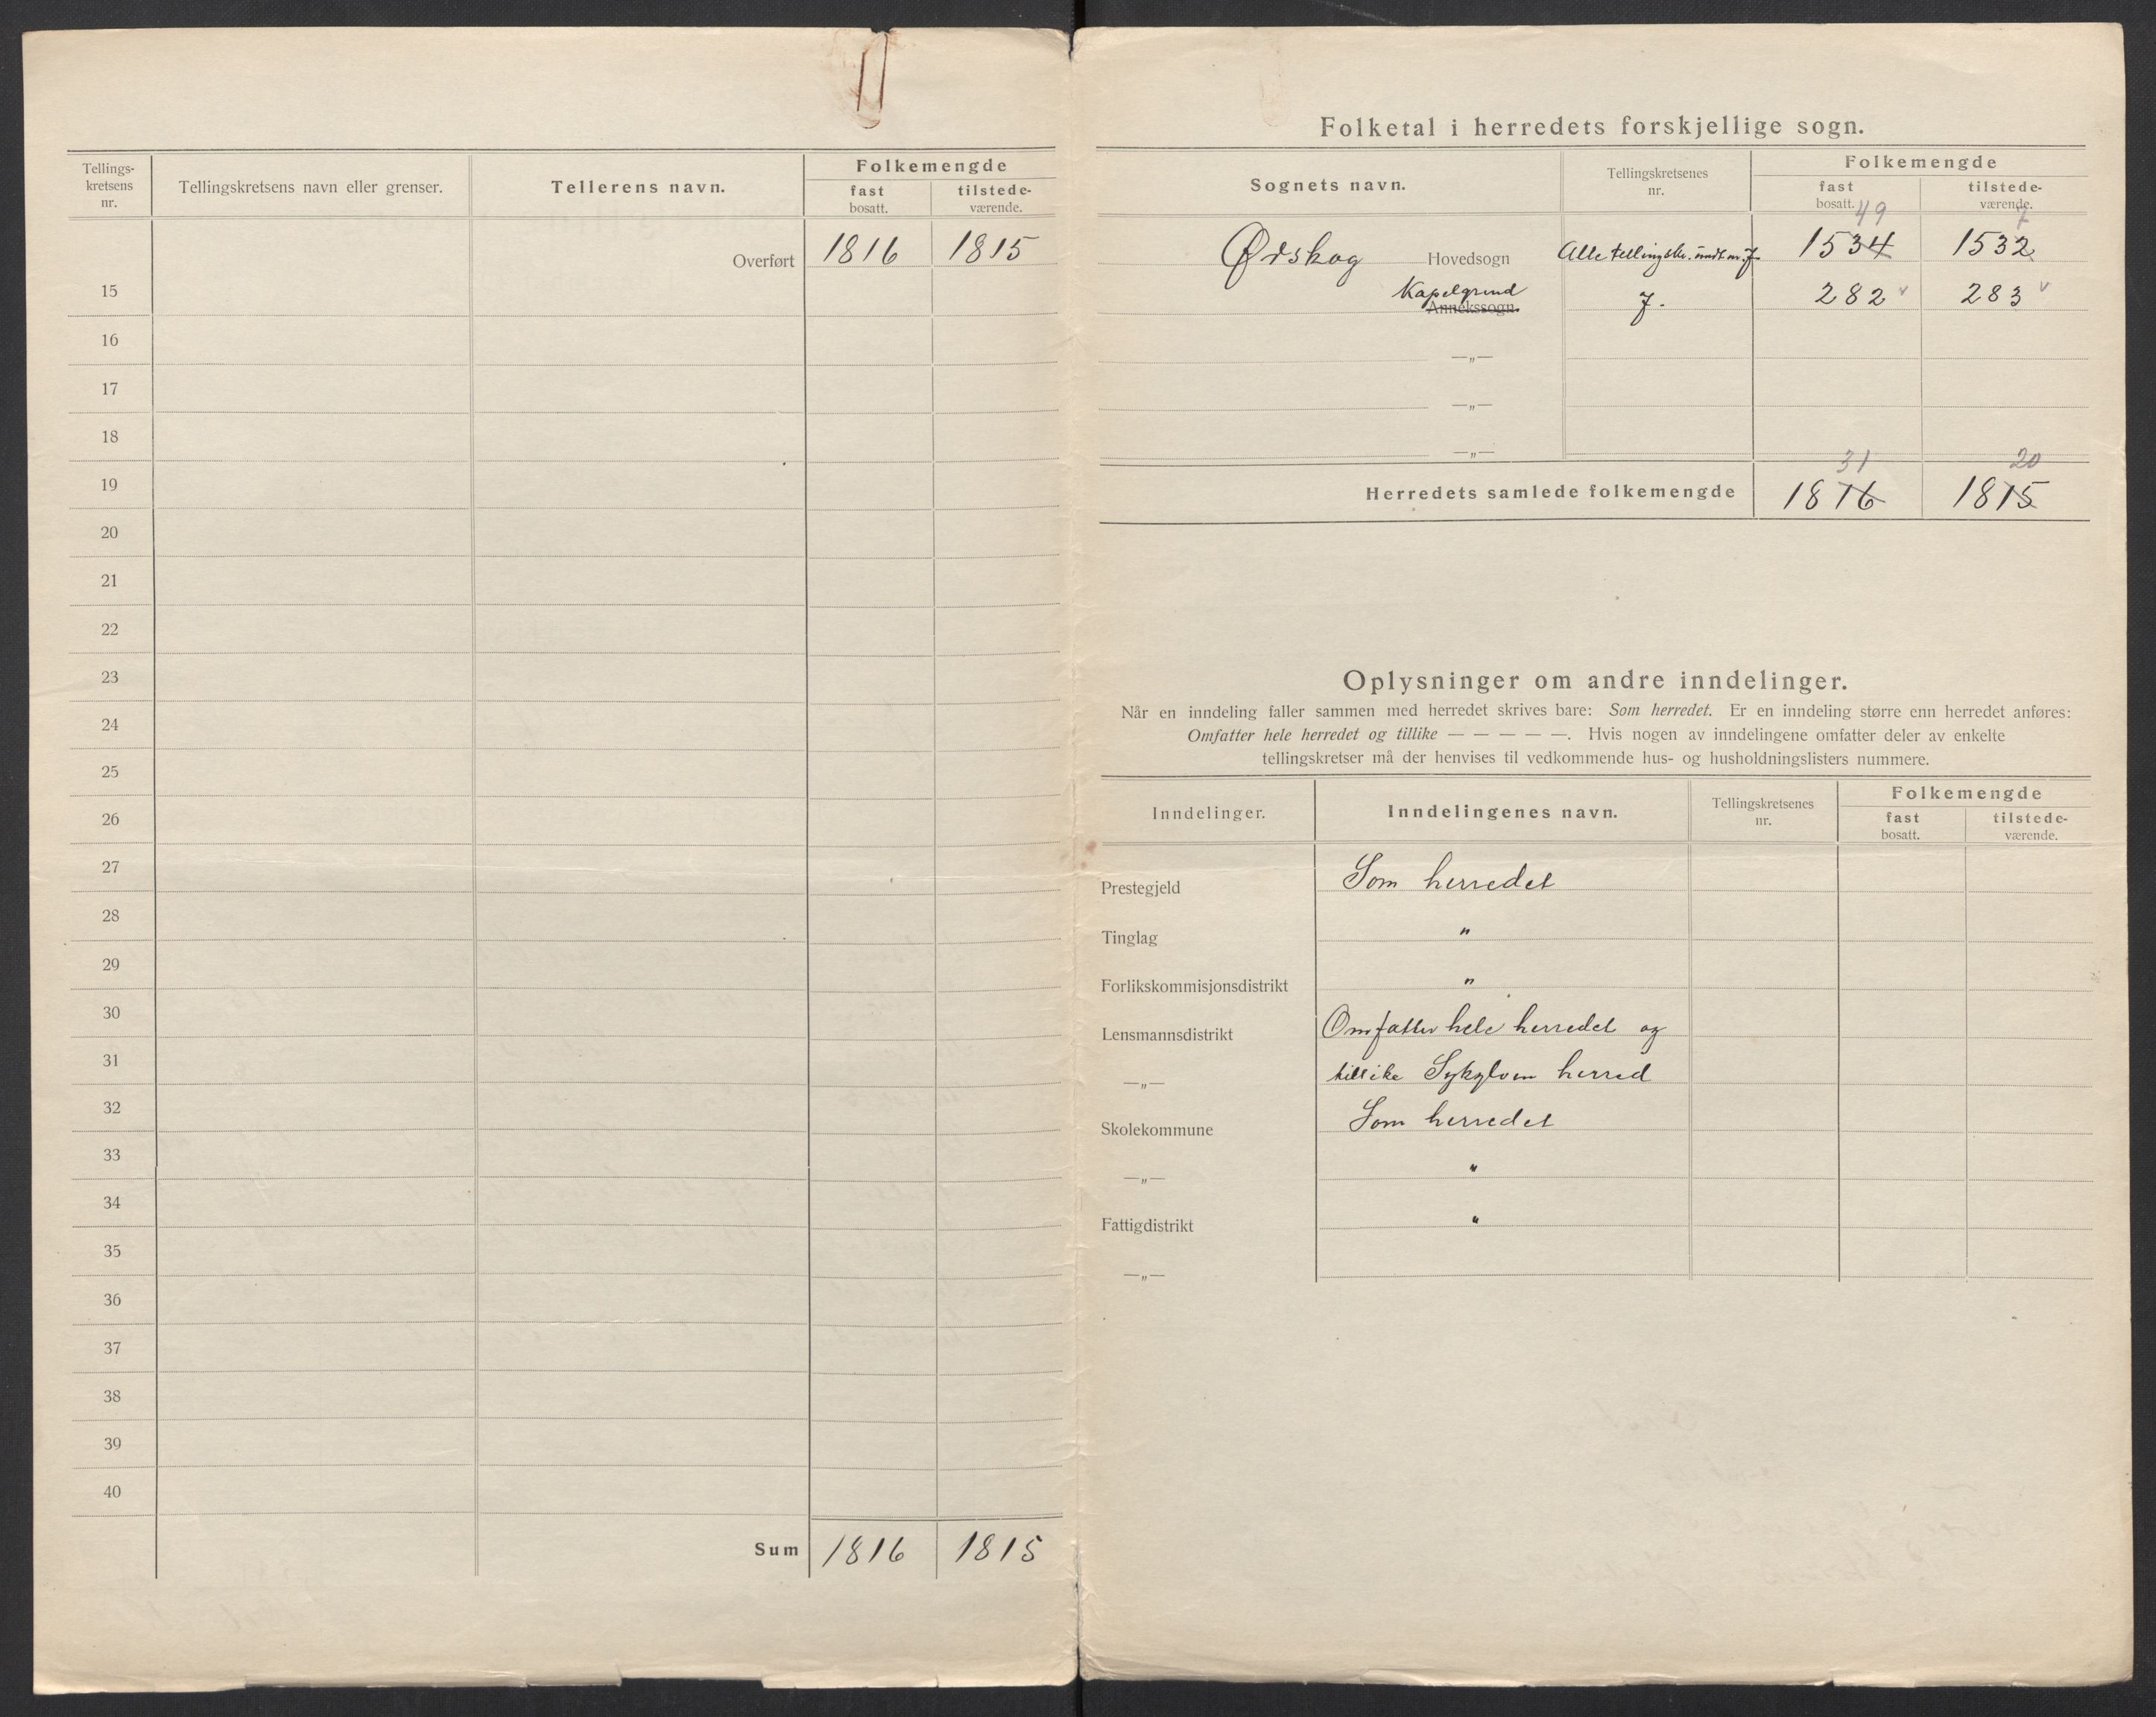 Tellings-
kretsens
nr.
Tellingskretsens navn eller grenser.
Tellerens navn.
Folkemengde
fast
bosatt.
tilstede-
værende.
Overført 1816 1815
15
16
17
18
19
20
21
22
23
24
25
26
27
28
29
30
31
32
33
34
35
36
37
38
39
40
Sum 1816 1815
Folketal i herredets forskjellige sogn.
Sognets navn.
Tellingskretsenes
nr.
Folkemengde
fast
bosatt.
tilstede-
værende.
49 7
Ørskog Hovedsogn Alle tellingskr. undt. nr. 7 1534 1532
Kapelgrend
Annekssogn. 7. 282 v 283 v
—„—
—„—
—„—
31 20
Herredets samlede folkemengde 1816 1815
Oplysninger om andre inndelinger.
Når en inndeling faller sammen med herredet skrives bare: Som herredet. Er en inndeling større enn herredet anføres:
Omfatter hele herredet og tillike — — — — —. Hvis nogen av inndelingene omfatter deler av enkelte
tellingskretser må der henvises til vedkommende hus- og husholdningslisters nummere.
Inndelinger.
Inndelingenes navn.
Tellingskretsenes
nr.
Folkemengde
fast
bosatt.
tilstede-
værende.
Prestegjeld Som herredet
Tinglag "
Forlikskommisjonsdistrikt "
Lensmannsdistrikt Omfatter hele herredet og
—„— tillike Sykylven herred
Skolekommune Som herredet
—„— "
Fattigdistrikt "
—„—